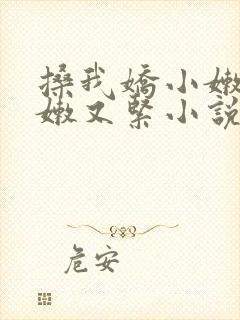 搡我嬌小嫩
嫩又緊小說
危安